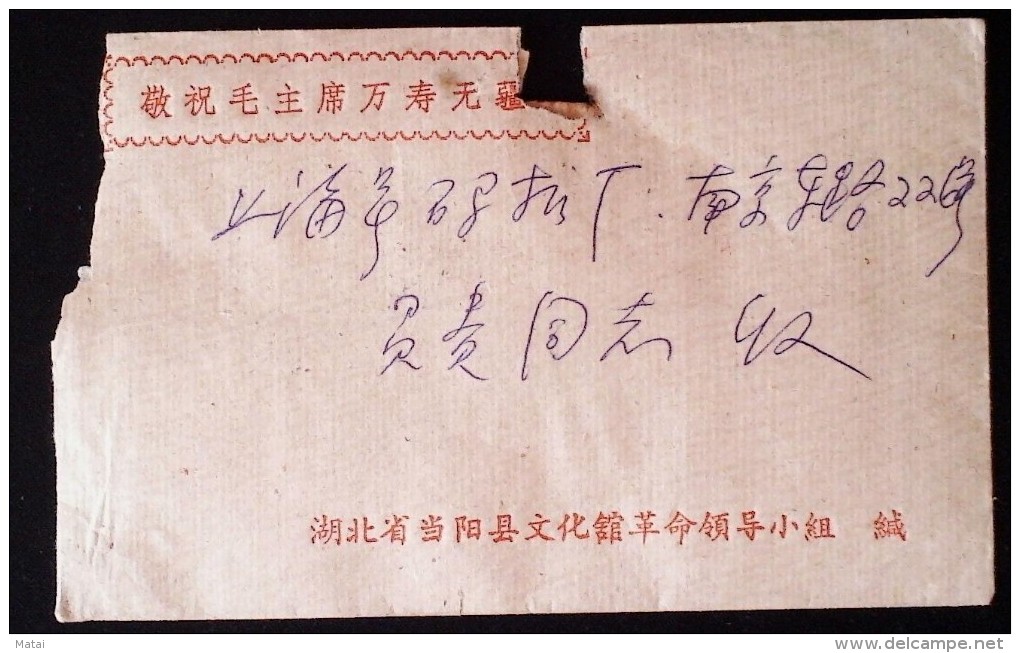 敬祝毛主席万寿无疆
上海 南京东路
贵同志 收
湖北省当阳县文化舘革命領导小組 緘
Matai
www.delcampe.net